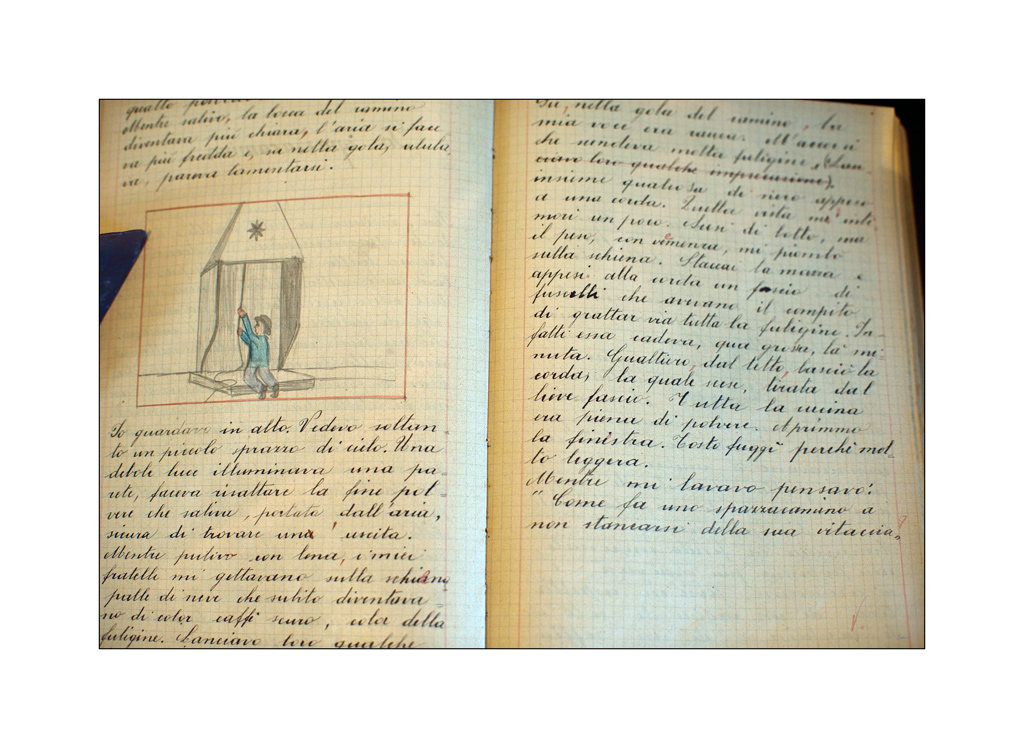 Mentre salivo, la bocca del camino
diventava più chiara, l'aria si face
va più fredda e, su nella gola, ulula
va, pareva lamentarsi.
Io guardavo in alto. Vedevo soltan
to un piccolo sprazzo di cielo. Una
debole luce illuminava una pa-
rete, faceva risaltare la fine pol-
vere che saliva, portata dall'aria,
sicura di trovare una uscita.
Mentre pulivo con lena, i miei
fratelli mi gettavano sulla schiena
palle di neve che subito diventava-
no di color caffè scuro, color della
fuligine. Lanciavo loro qualche
Su, nella gola del camino, la
mia voce era rauca. M'accorsi
che scendeva molta fuligine, (Lan-
ciavo loro qualche imprecazione).
insieme qualcosa di nero appeso
a una corda. Quella vista mi inti
morì un poco. Scesi di botto, ma
il peso, con veemenza, mi piombò
sulla schiena. Staccai la mazza e
appesi alla corda un fascio di
fuscelli che avevano il compito
di grattar via tutta la fuligine. In
fatti essa cadeva, qua grossa, là mi-
nuta. Gualtiero, dal tetto, lasciò la
corda, la quale scese, tirata dal
lieve fascio. Tutta la cucina
era piena di polvere. Aprimmo
la finestra. Tosto fuggì perchè mol-
to leggera.
Mentre mi lavavo pensavo:
"Come fa uno spazzacamino a
non stancarsi della sua vitaccia?